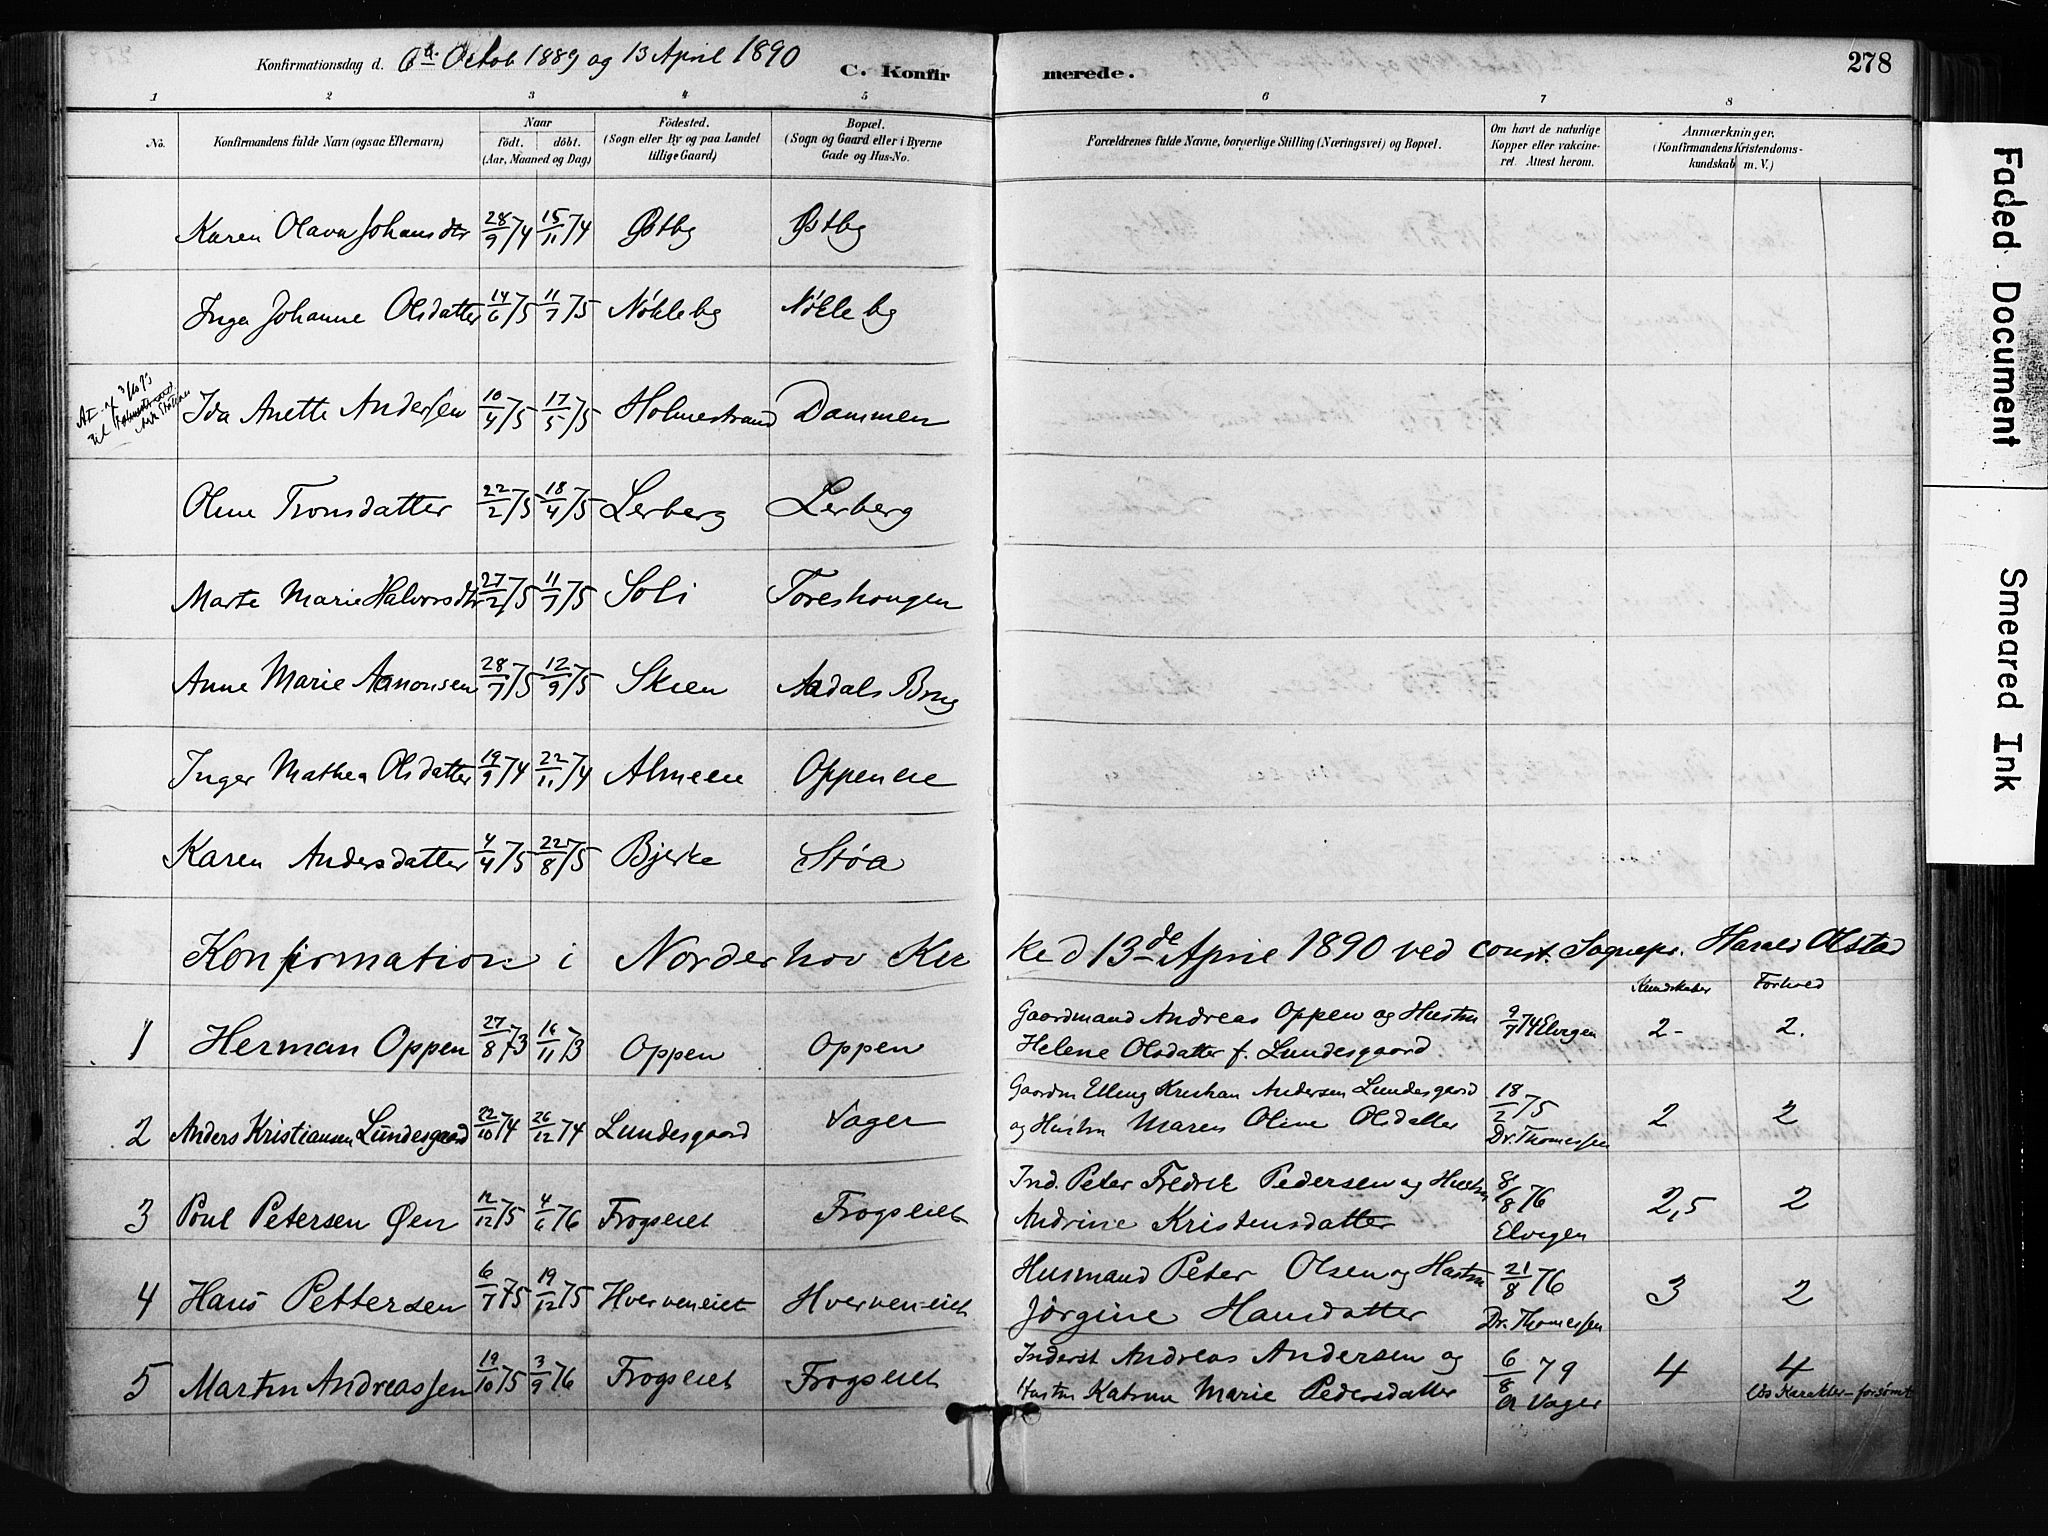 Konfirmationsdag d. 6te Octob 1889 og 13 April 1890 C. Konfirmerede. 278
1 2 3 4 5 6 7 8
No. Konfirmandens fulde Navn (ogsaa Efternavn) Naar födt. döbt. (Aar, Maaned og Dag) Födested. (Sogn eller By og paa Landet tillige Gaard) Bopæl. (Sogn og Gaard eller i Byerne Gade og Hus-No. Forældrenes fulde Navne, borgerlige Stilling (Næringsvei) og Bopæl. Om havt de naturlige Kopper eller vakcineret. Attest herom. Anmærkninger. (Konfirmandens Kristendomskundskab m. V.)
Karen Olava Johansdtr 28/9 74 15/11 74 Østby Østby
Inga Johanne Olsdatter 14/6 75 11/7 75 Nökleby Nökleby
Ida Anette Andersen 10/4 75 17/5 75 Holmestrand Dammen
Oline Tronsdatter 22/2 75 18/4 75 Lerberg Lerberg
Marte Marie Halvorsdtr 27/2 75 11/7 75 Soli Toreshougen
Anne Marie Aamonsen 28/7 75 12/9 75 Skien Aadals Brug
Inger Mathea Olsdatter 19/9 74 22/11 74 Almeie Oppeneie
Karen Andersdatter 4/4 75 22/8 75 Bjerke Støa
Konfirmation i Norderhov Kirke d 13de April 1890 ved const. Sognepr. Harald Olstad
Kundskaber Forhold
1 Herman Oppen 27/8 73 16/11 73 Oppen Oppen Gaardmand Andreas Oppen og Hustru Helene Olsdatter f. Lundesgaard 9/7 74 Elvigen 2- 2.
2 Anders Kristiansen Lundesgaard 22/10 74 26/12 74 Lundesgaard Vager Gaardm Elling Kristian Andersen Lundesgaard og Hustru Maren Oline Olsdatter 18/2 75 Dr. Thomessen 2 2
3 Poul Petersen Øen 12/12 75 4/6 76 Frogseiet Frogseiet Ind. Peter Fredrik Pedersen og Hustru Andrine Kristensdatter 8/8 76 Elvigen 2,5 2
4 Hans Pettersen 6/7 75 19/12 75 Hverveneiet Hverven-eiet Husmand Peter Olsen og Hustru Jørgine Hansdatter 21/8 76 Dr. Thomessen 3 2
5 Martin Andreassen 19/10 75 3/9 76 Frogseiet Frogseiet Inderst Andreas Andersen og Hustru Katrine Marie Pedersdatter 6/8 79 A Vager 4 4
Karakter - forsømt
Faded Document
Smeared Ink